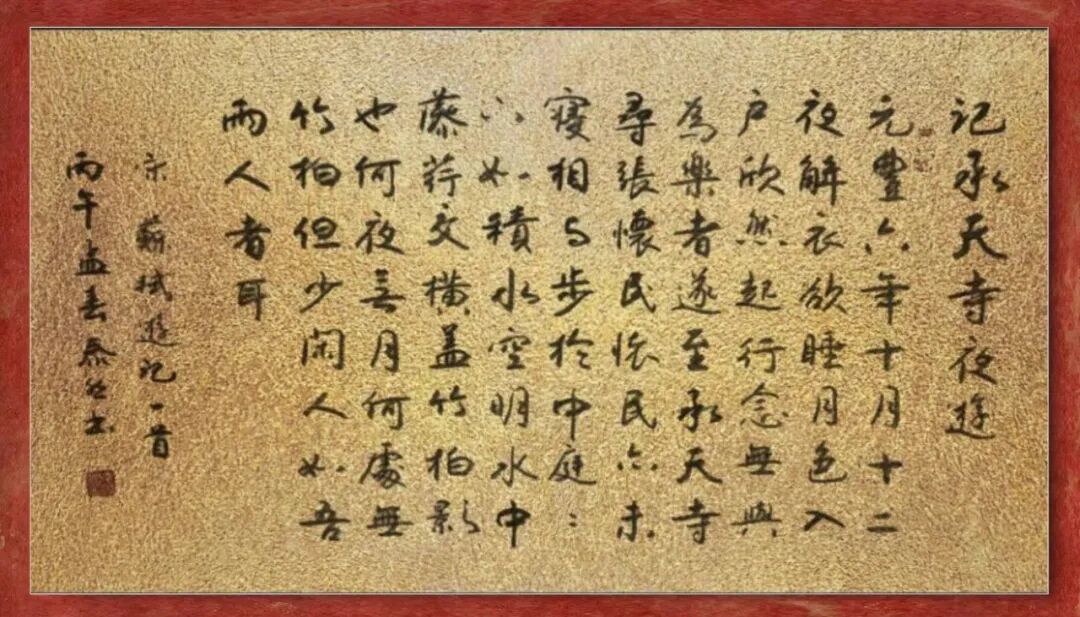 记承天寺夜遊
元豐六年十月十二
夜解衣欲睡月色入
户欣然起行念無與
為樂者遂至承天寺
尋張懷民怀民亦未
寝相与步於中庭:
下如積水空明水中
藻荇交横盖竹柏影
也何夜无月何處無
竹柏但少闲人如吾
兩人者耳
宋 蘇軾遊记一首
丙午孟春书